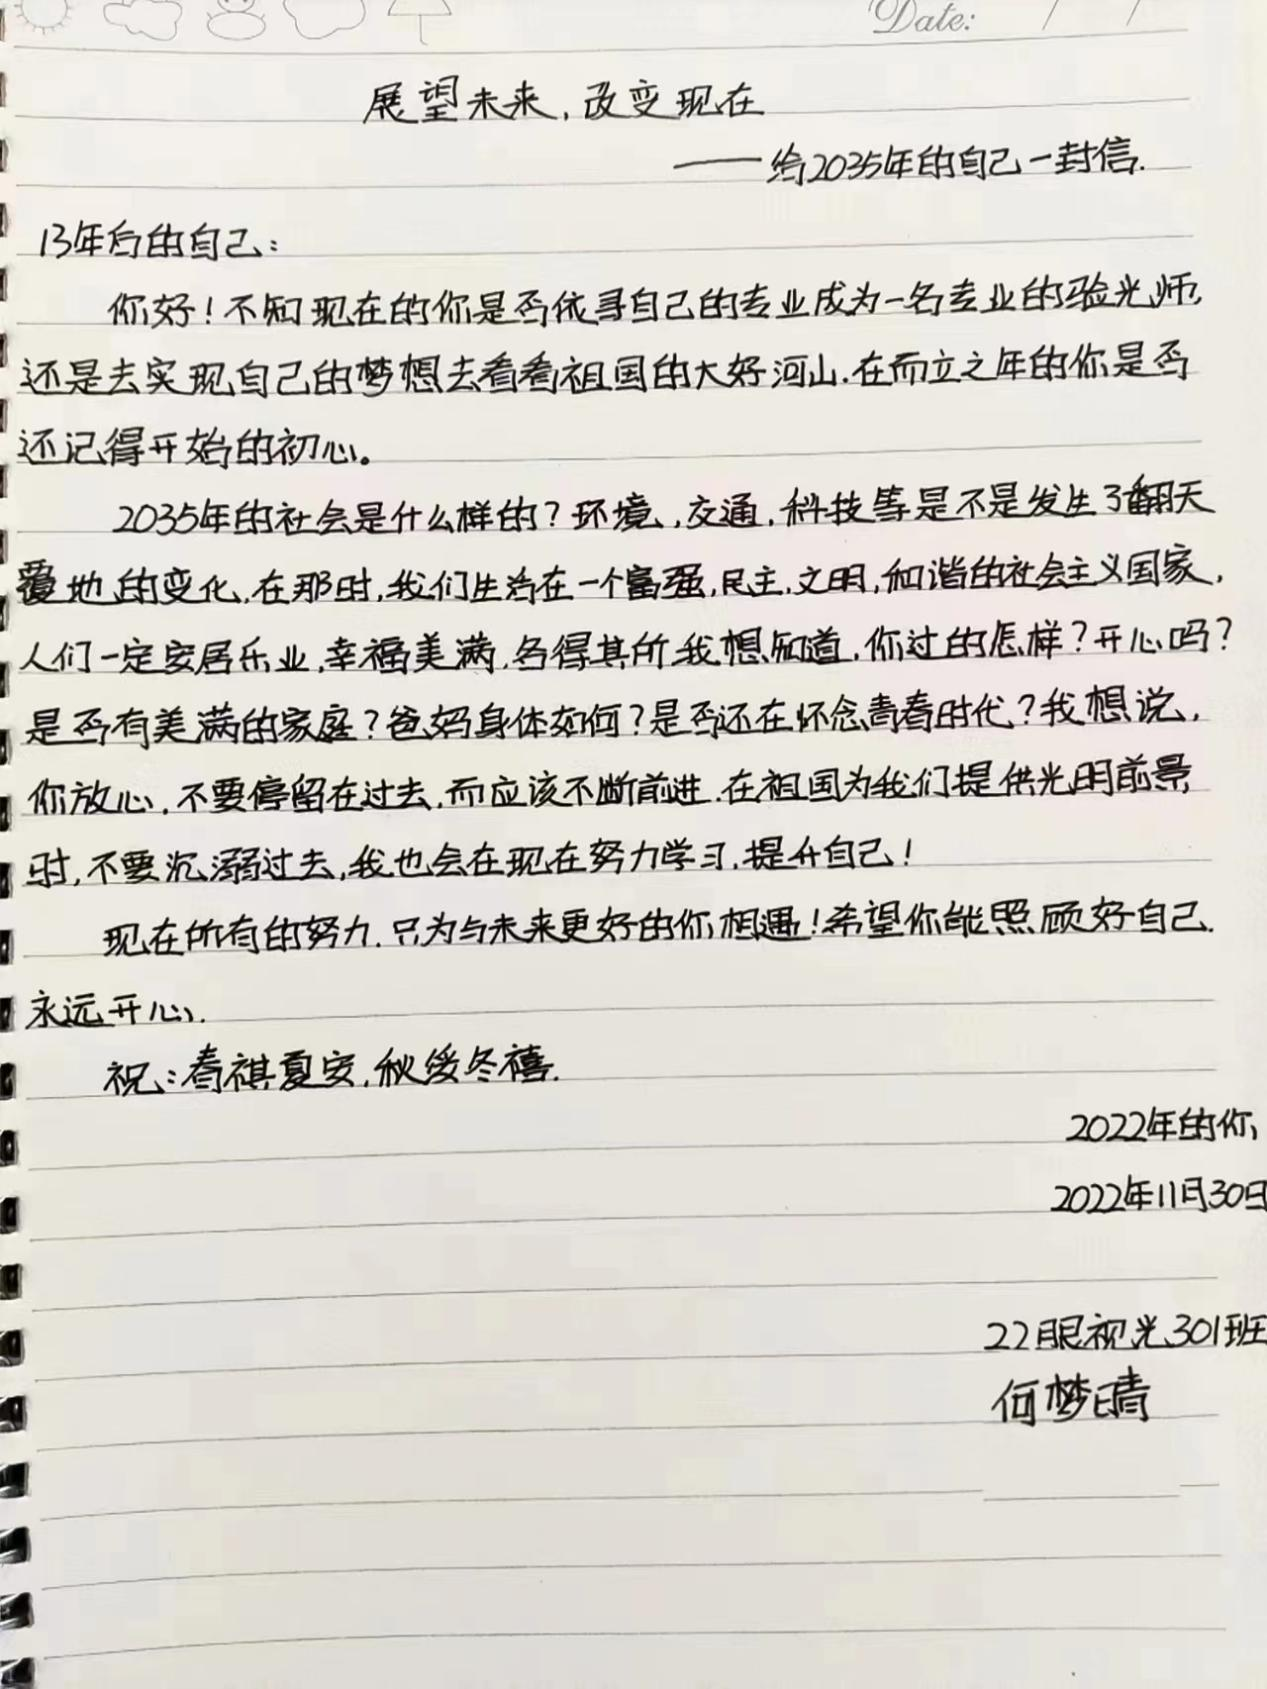 Date: / /
展望未来,改变现在
——给2035年的自己一封信.
13年后的自己:
你好!不知现在的你是否依寻自己的专业成为一名专业的验光师,
还是去实现自己的梦想去看看祖国的大好河山.在而立之年的你是否
还记得开始的初心。
2035年的社会是什么样的?环境,交通,科技等是不是发生了翻天
覆地的变化,在那时,我们生活在一个富强,民主,文明,和谐的社会主义国家,
人们一定安居乐业,幸福美满,各得其所.我想知道,你过的怎样?开心吗?
是否有美满的家庭?爸妈身体如何?是否还在怀念青春时代?我想说,
你放心,不要停留在过去,而应该不断前进.在祖国为我们提供光明前景
时,不要沉溺过去,我也会在现在努力学习,提升自己!
现在所有的努力.只为与未来更好的你相遇!希望你能照顾好自己.
永远开心.
祝:春祺夏安,秋绥冬禧.
2022年的你
2022年11月30日
22眼视光301班
何梦晴